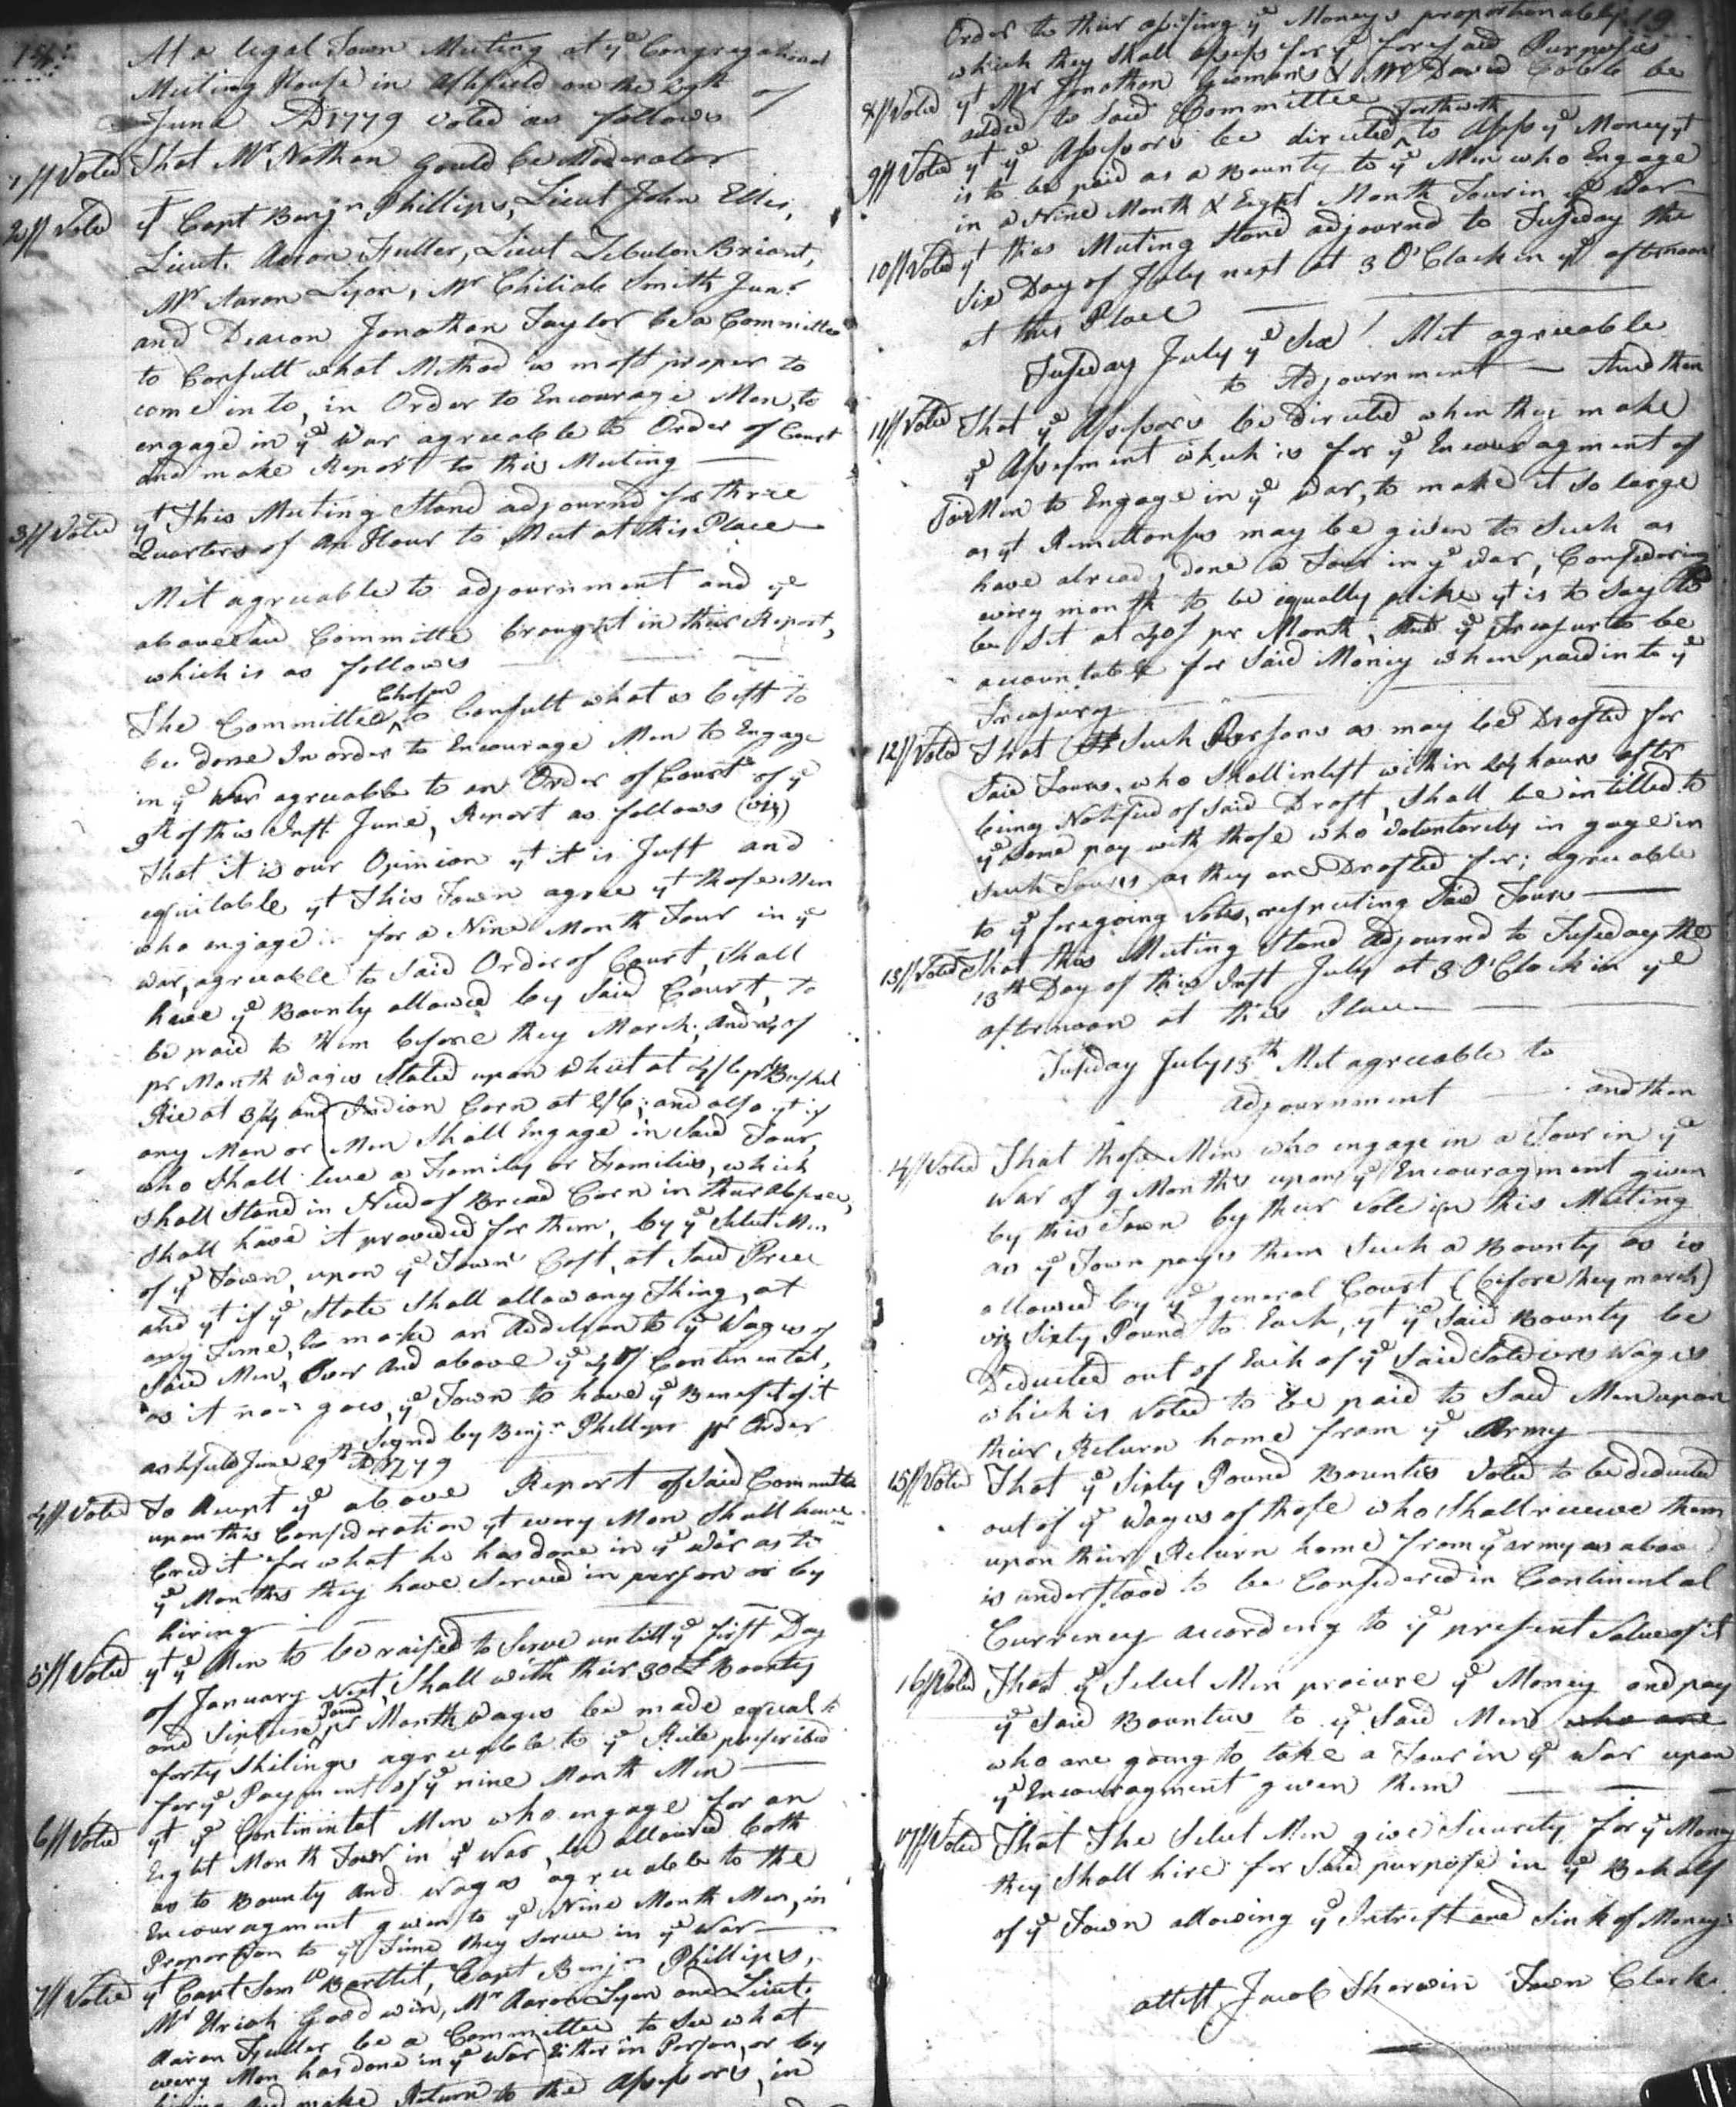 At a legal Town Meeting at ye Congregational
Meeting House in Ashfield on the 29th of
June AD 1779 voted as follows
1// Voted That Mr Nathan Gould be Moderator
2// Voted yt Capt Benjn Phillips, Lieut John Ellis,
Lieut. Aaron Fuller, Lieut Zebulon Briant,
Mr Aaron Lyon, Mr Chiliab Smith Junr
and Deacon Jonathan Taylor be a Committee
to Consult what Method is most proper to
come in to, in Order to Encourage Men, to
engage in ye War agreeable to Order of Court
and make Report to this Meeting
3// Voted yt This Meeting Stand adjournd for three
Quarters of An Hour to Meet at this Place
Met agreeable to adjournment and ye
abovesaid Committe brought in their Report,
which is as follows
The Committee Chosen to Consult what is best to
be done In order to Encourage Men to Engage
in ye War agreeable to an Order of Court of ye
9th of this Inst. June, Report as follows (viz)
That it is our Opinion yt it is Just and
equitable yt This Town agree yt those Men
who engage for a Nine Month Tour in ye
War, agreeable to Said Order of Court, Shall
have ye Bounty allowed by Said Court, to
be paid to them before they March; and of
pr Month Wages Stated upon Wheat at 4/6 pr Bushel
Rie at 3/4 and Indion Corn at 2/6; and also yt if
any Man or Men Shall Engage in Said Tour,
who Shall leve a Family or Families, which
Shall Stand in Need of Bread Corn in their Absence,
Shall have it provided for them, by ye Select Men
of ye Town, upon ye Town Cost, at Said Price
and yt if ye State Shall allow any Thing, at
any Time, to make an Addition to ye Wages of
Said Men, Over and above ye Continental,
as it now goes, ye Town to have ye Benefit of it
Signd by Benjn Phillips pr Order
Ashfield June 29th AD 1779
4// Voted To Accept ye above Report of Said Committee
upon this Consideration yt every Man Shall have
Credit for what he has done in ye War as to
ye Months they have Served in person or by
hiring
5// Voted yt ye Men to be raised to Serve untill ye first Day
of January Next, Shall with their 30£ Bounty
and Sixteen Pound pr Month Wages be made equal to
forty Shilings agreeable to ye Rule prescribed
for ye Payment of ye nine Month Men
6// Voted yt ye Continintal Men who engage for an
Eight Month Tour in ye War, be allowed both
as to Bounty and Wages agreeable to the
Encouragment given to ye Nine Month Men, in
Proportion to ye Time they Serve in ye War
7// Voted yt Capt Samll Bartlit, Capt Benjn Phillips,
Mr Uriah Goodwin, Mr Aaron Lyon and Lieut.
Aaron Fuller be a Committee to See what
every Man has done in ye War Either in Person, or by
hiring And make Return to the Assessors, in
19
Order to their assessing ye Moneys proportionably
which they Shall assess for ye foresaid Purposes
8// Voted yt Mr Jonathan Yeomans & Mr David Cobb be
added to Said Committee
9// Voted yt ye Assessors be directed forthwith to Assess ye Money yt
is to be paid as a Bounty to ye Men who Engage
in a Nine Month & Eight Month Tour in ye War
10// Voted yt this Meeting Stand adjournd to Tusday the
Six Day of July next at 3 O'Clock in ye afternoon
at this Place
Tusday July ye Six! Met agreeable
to Adjournment — And then
11// Voted That ye Assessors be Directed when they make
ye Assesment which is for ye Encouragment of
Said Men to Engage in ye War, to make it So large
as yt Remittances may be given to Such as
have already done a Tour in ye War, Considering
every month to be equally alike yt is to Say to
be Set at 40/ pr Month, And ye Treasurer to be
accountable for Said Money when paid into ye
Treasury
12// Voted That Such Persons as may be Drafted for
Said Tours, who Shall inlist within 24 hours after
being Notified of Said Draft, Shall be intitled to
ye Same pay with those who Voluntarily in gage in
Such Tours as they are Drafted for; agreeable
to ye foregoing Votes, respecting Said Tours
13// Voted That this Meeting Stand Adjournd to Tusday the
13th Day of this Inst July at 3 O'Clock in ye
afternoon at this Place
Tusday July 13th Met agreeable to
adjournment — and then
14// Voted That those Men who engage in a Tour in ye
War of 9 Months upon ye Encouragment given
by this Town by their Vote in this Meeting
as ye Town pays them Such a Bounty as is
allowed by ye general Court (before they march)
viz Sixty Pound to Each, yt ye Said Bounty be
Deducted out of Each of ye Said Soldiers Wages
which is Voted to be paid to Said Men upon
their Return home from ye Army
15// Voted That ye Sixty Pound Bounties Voted to be deducted
out of ye Wages of those who Shall receive them
upon their Return home from ye army as above
is understood to be Considered in Continental
Currency according to ye present Value of it
16// Voted That ye Select Men procure ye Money and pay
ye Said Bounties to ye Said Men who are
who are going to take a Tour in ye War upon
ye Encouragment given them
17// Voted That The Select Men give Security for ye Money
they Shall hire for Said purpose in ye Behalf
of ye Town allowing ye Intrest and Sink of Money
attest Jacob Sherwin Town Clerk